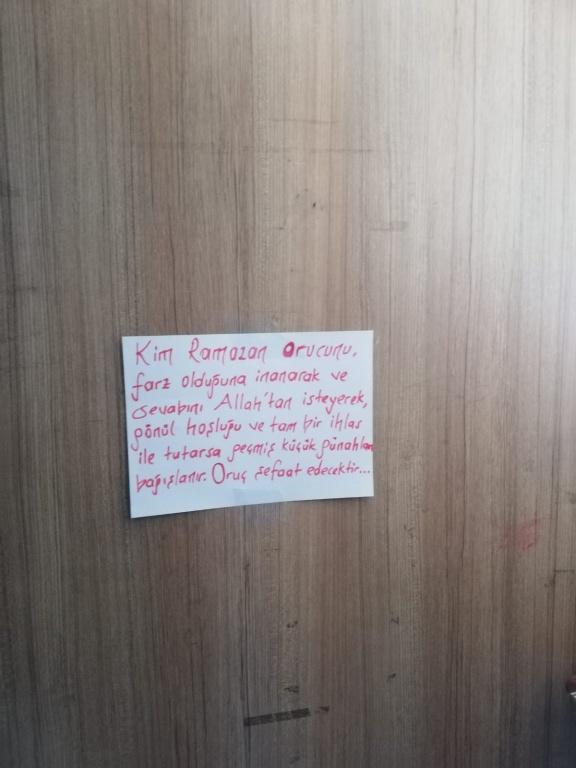 Kim Ramazan Orucunu,
farz olduğuna inanarak ve
sevabını Allah'tan isteyerek,
gönül hoşluğu ve tam bir ihlas
ile tutarsa geçmiş küçük günahları
bağışlanır. Oruç şefaat edecektir...